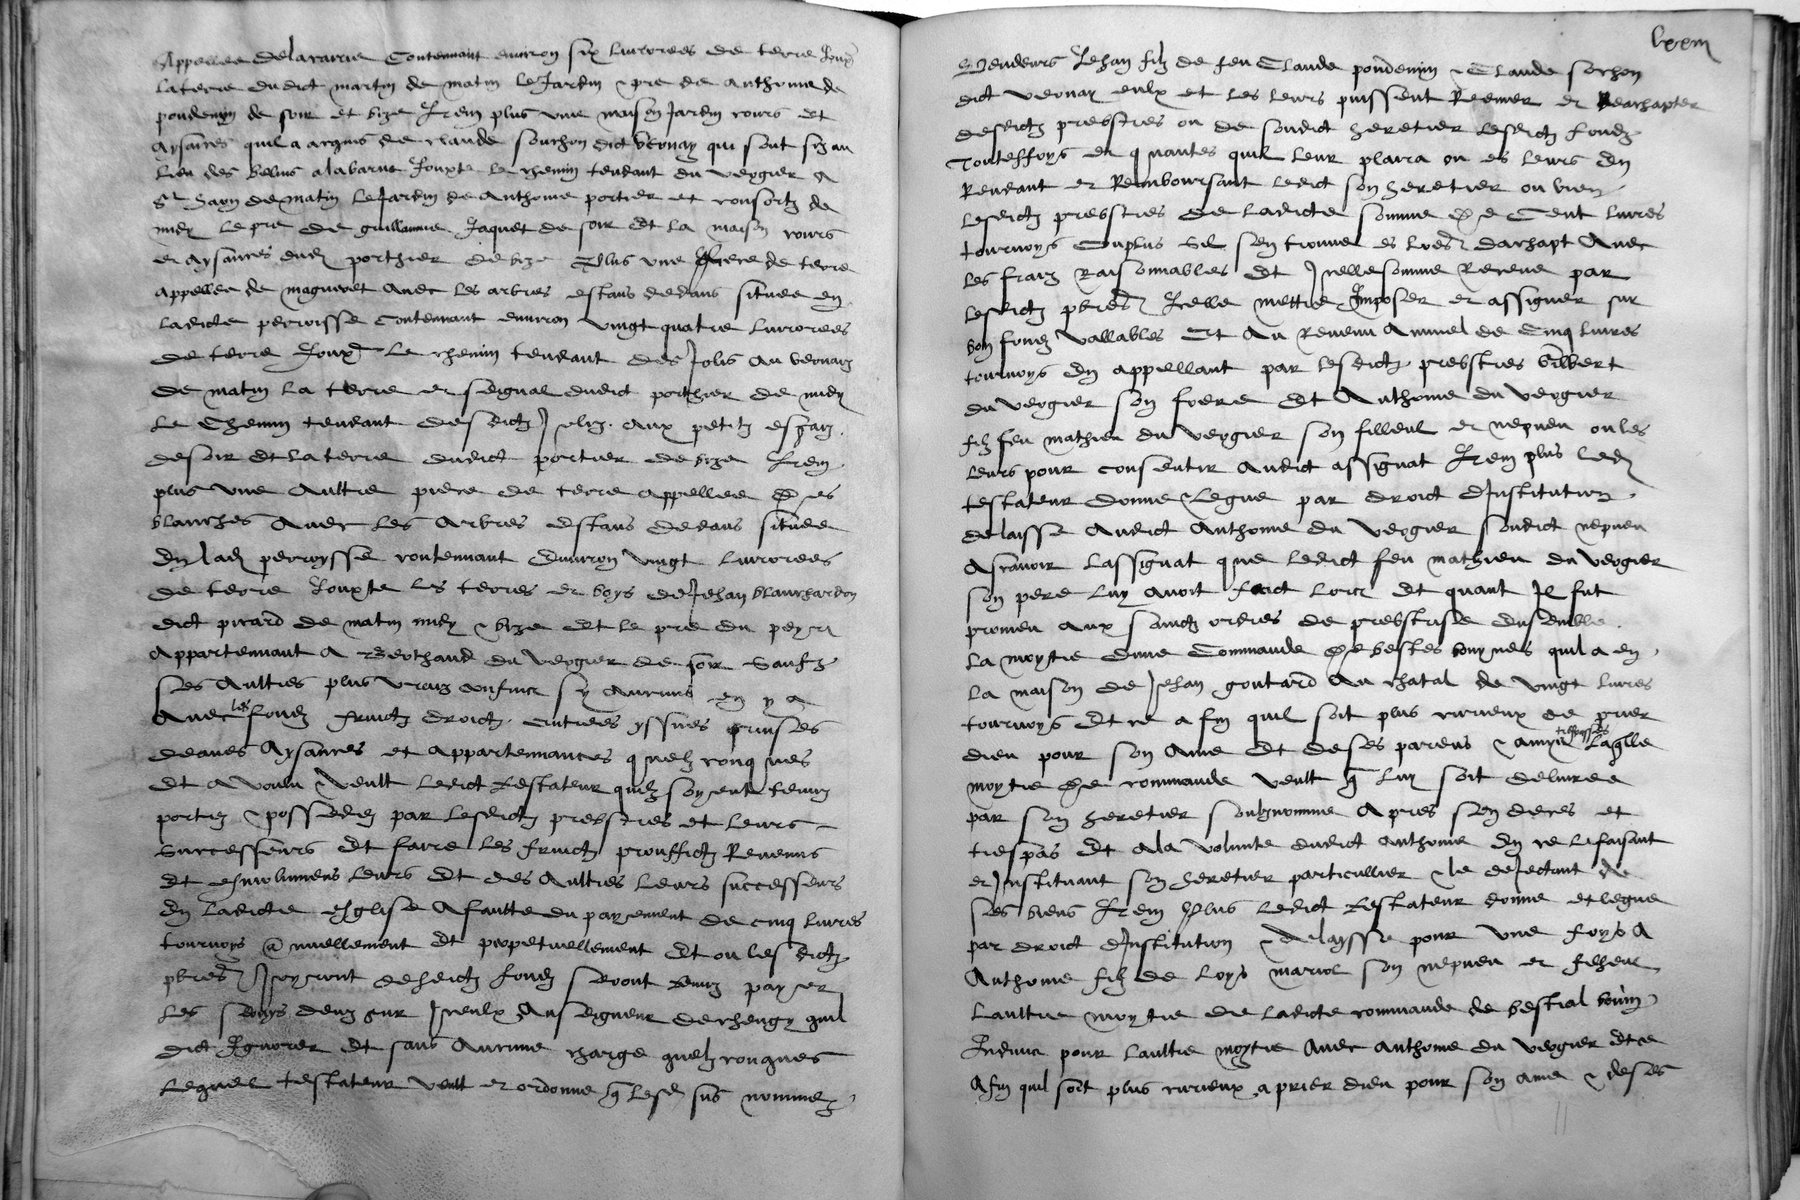 Appellee delavarrie contennant environ six livrorees de terre Joux
la terre dudict martin de matin le Jardin & pre de anthoine de
pondemyn de soir et bize Item plus une maison Jardin cours et
aysances quil a acquis de claude sorchon dict veonay qui sont siz au
lieu des belins a labarne Jouxte le chemin tendant du vergier a
st hayn de matin le Jardin de anthoine portier et consortz de
midy le pre de guillaume Jaquet de soir et la maison cours
et aysances dud porthier de bize Plus une piece de terre
appellee de magneret avec les arbres estans dedans situee en
ladicte perroisse contennant environ vingt quatre livrorees
de terre Jouxte le chemin tendant des Jolis au veonay
de matin la terre et seignal dudict porthier de midy
le chemin tendant desdictz Joliz aux petitz essarz
de soir et la terre dudict portier de bize Item
plus une aultre piece de terre appellee des
blanches avec les arbres estans dedans situee
en lad perroysse contennant environ vingt livrorees
de terre Jouxte les terres et boys de Jehan blanchardon
dict picard de matin midy & bize et le pre du
appartennant a Berthaud du vergier de soir saufz
ses aultres plus vraiz confins sy aucuns en y a
avec les fondz fruictz droictz entrees yssues prinses
deaues aysances et appartennances quelzconques
et a voulu & veult ledict testateur quilz soyent tenuz
portez & possedez par lesdictz prebstres et leurs
successeurs et faire les fruictz prouffictz Revenus
et esmolumens leurs et des aultres leurs successeurs
en ladicte esglise a faulte du payement de cinq livres
tournoys annuellement et perpetuellement et ou lesdictz
pbres Joyront desdictz fondz seront tenuz payer
les servys deuz sur Iceulx au seigneur de chengy quil
dict Ignorer et sans aucune charge quelzconques
Lequel testateur veult et ordonne q lesd sus nommez
lxxiii
vendeurs Jehan filz de feu Claude pondemyn & Claude sorchon
dict veonay eulx et les leurs puissent Reemer et Reachapter
desdictz prebstres ou de sondict heretier lesdictz fondz
Touteffoys et quantes quil leur plaira ou es leurs en
Rendant et Remboursant ledict son heretier ou bien
lesdictz prebstres de ladicte somme de Cent livres
tournoys ou plus sil sen trouve es lres dachapt avec
les fraiz raisonnables et Icelle somme Receue par
lesdictz pbres Icelle mettre Imposer et assigner sur
bon fondz vallables et au Revenu annuel de Cinq livres
tournoys en appellant par lesdictz prebstres Gilbert
du vergier son frere et Anthoine du vergier
filz feu mathieu du vergier son filleul et nepveu ou les
leurs pour consentir audict assignat Item plus led
testateur donne & legue par droict dInstitution
delaisse audict Anthoine du vergier sondict nepveu
Ascavoir lassignat que ledict feu mathieu du vergier
son pere luy avoit faict lors et quant Il fut
promeu aux sainctz ordres de prebstrise ensemble
la moytie dune Commande de bestes bovynes quil a en
la maison de Jehan goutard au chatal de vingt livres
tournoys et ce a fin quil soit plus curieux de prier
dieu pour son Ame et de ses parens & amys trespasses Laqlle
moytie de commande veult q luy soit delivree
par son heretier soubznomme apres son deces et
trespas et a la volunte dudict anthoine en ce le faisant
et Instituant son heretier particullier & le dejectant de
ses biens Item Plus ledict testateur donne et legue
par droict dInstitution & delaysse pour une foys A
Anthoine filz de loys mariol son nepveu et filleul
Laultre moytie de ladicte commande de bestial bovin
Indivis pour laultre moytie avec anthoine du vergier et ce
Afin quil soit plus curieux a prier dieu pour son ame & de ses